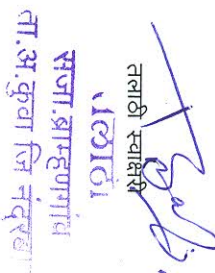 तलाठी स्वाक्षरी
तलाठी
सजा.ब्राम्हणगांव
ता.अ.कुवा जि नंदुरबार